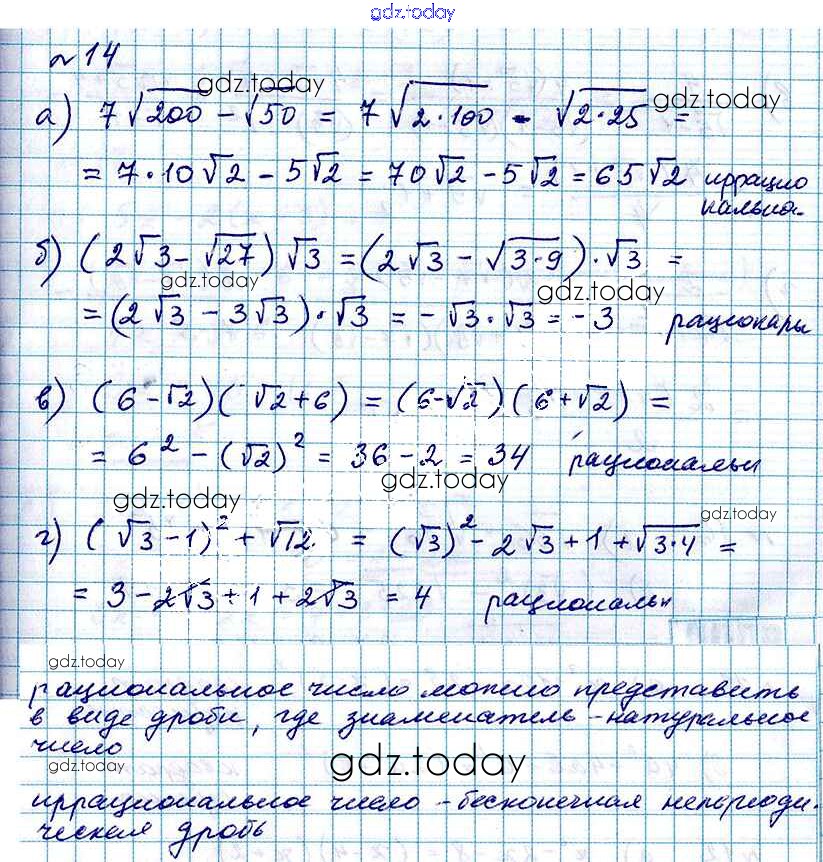 gdz.today
№ 14
gdz.today
gdz.today
а) 7√200 - √50 = 7√2·100 - √2·25 =
= 7·10√2 - 5√2 = 70√2 - 5√2 = 65√2 иррацио
нальна.
б) (2√3 - √27) √3 = (2√3 - √3·9)·√3 =
gdz.today
gdz.today
= (2√3 - 3√3)·√3 = -√3·√3 = -3
в) (6-√2)(√2+6) = (6-√2)(6+√2) =
= 6² - (√2)² = 36 - 2 = 34 рациональн
gdz.today
gdz.today
gdz.today
г) (√3-1)² + √12 = (√3)² - 2√3 + 1 + √3·4 =
= 3 - 2√3 + 1 + 2√3 = 4 рациональн
gdz.today
рациональное число можно представить
в виде дроби, где знаменатель - натуральное
число
gdz.today
gdz.today
иррациональное число - бесконечная непериоди-
ческая дробь